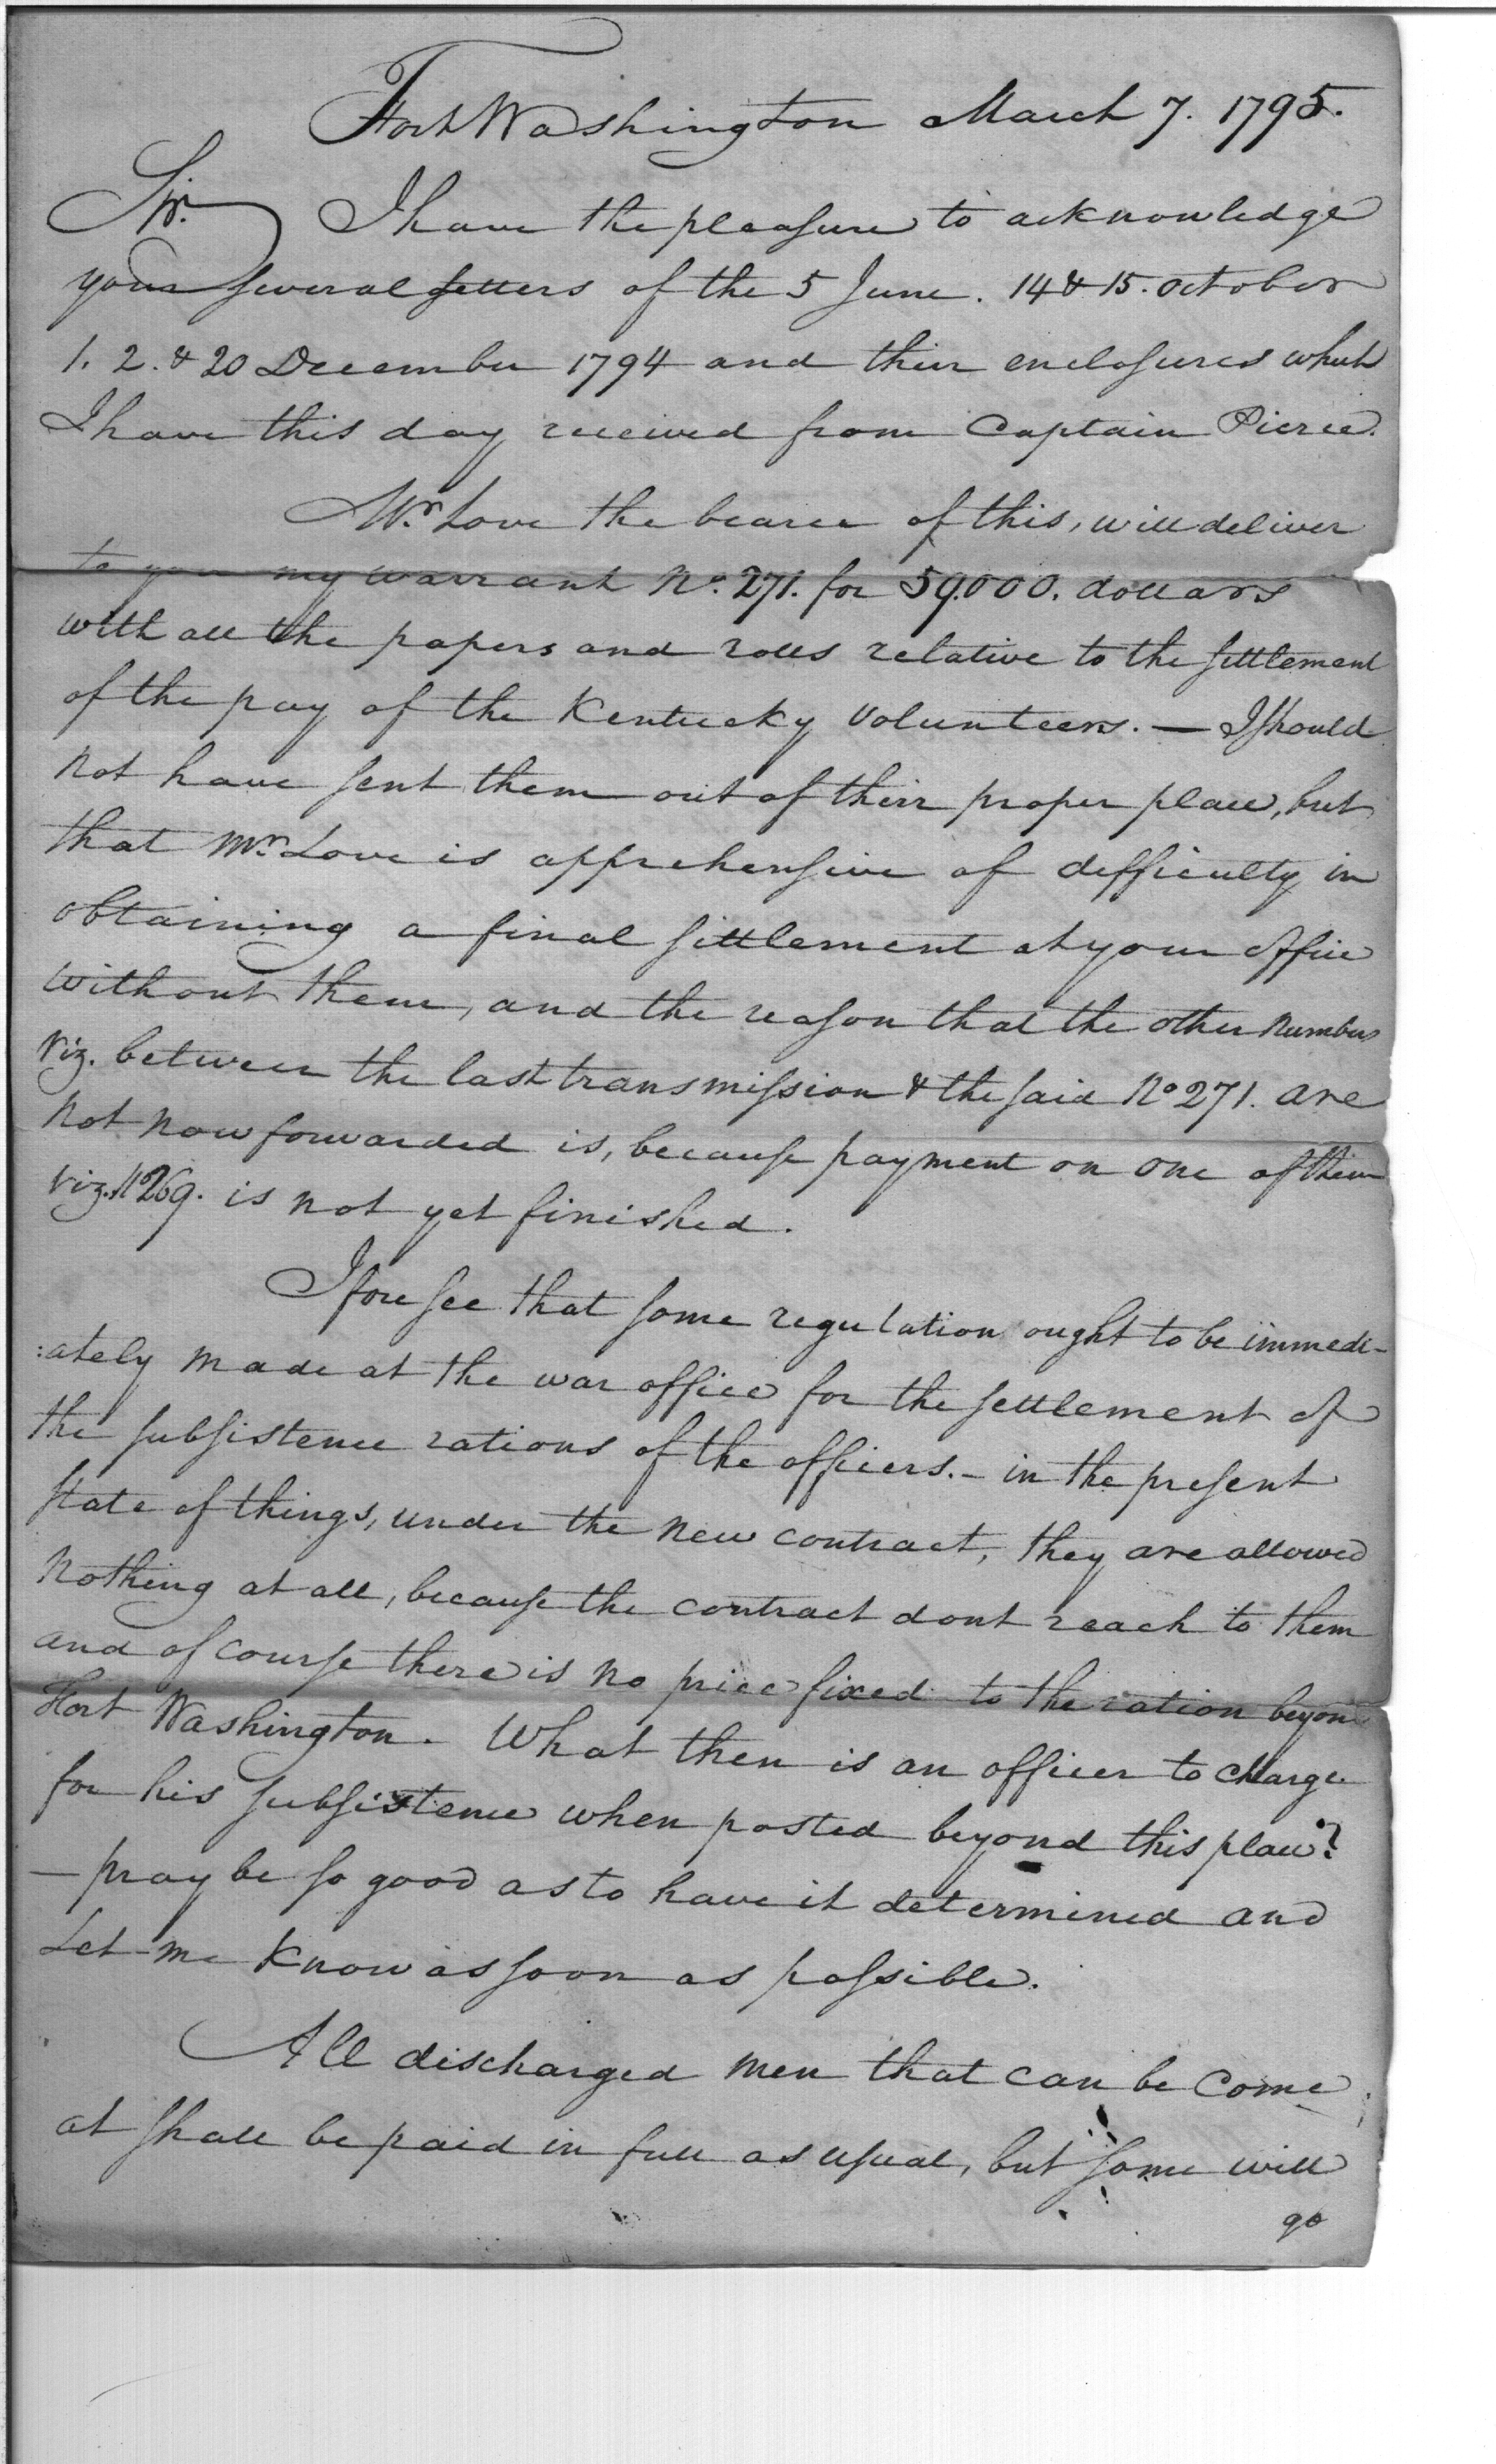 Fort Washington March 7. 1795.
Sir. I have the pleasure to acknowledge
your several letters of the 5 June. 14 & 15. october
1. 2. & 20 December 1794 and their enclosures which
I have this day received from Captain Pierce.
Mr. Love the bearer of this, will deliver
to you my warrant No. 271. for 59.000. dollars
with all the papers and rolls relative to the settlement
of the pay of the Kentucky Volunteers. — I should
not have sent them out of their proper place, but
that Mr. Love is apprehensive of difficulty in
obtaining a final settlement at your office
without them, and the reason that the other numbers
viz. between the last transmission & the said No 271. are
not now forwarded is, because payment on one of them
viz. No 269. is not yet finished.
I fore see that some regulation ought to be immedi-
:ately made at the war office for the settlement of
the subsistence rations of the officers. – in the present
state of things, under the new contract, they are allowed
nothing at all, because the contract dont reach to them
and of course there is no price fixed to the ration beyond
Fort Washington. What then is an officer to charge
for his subsistence when posted beyond this place?
— pray be so good as to have it determined and
Let me know as soon as possible.
All discharged men that can be come
at shall be paid in full as usual, but some will
go